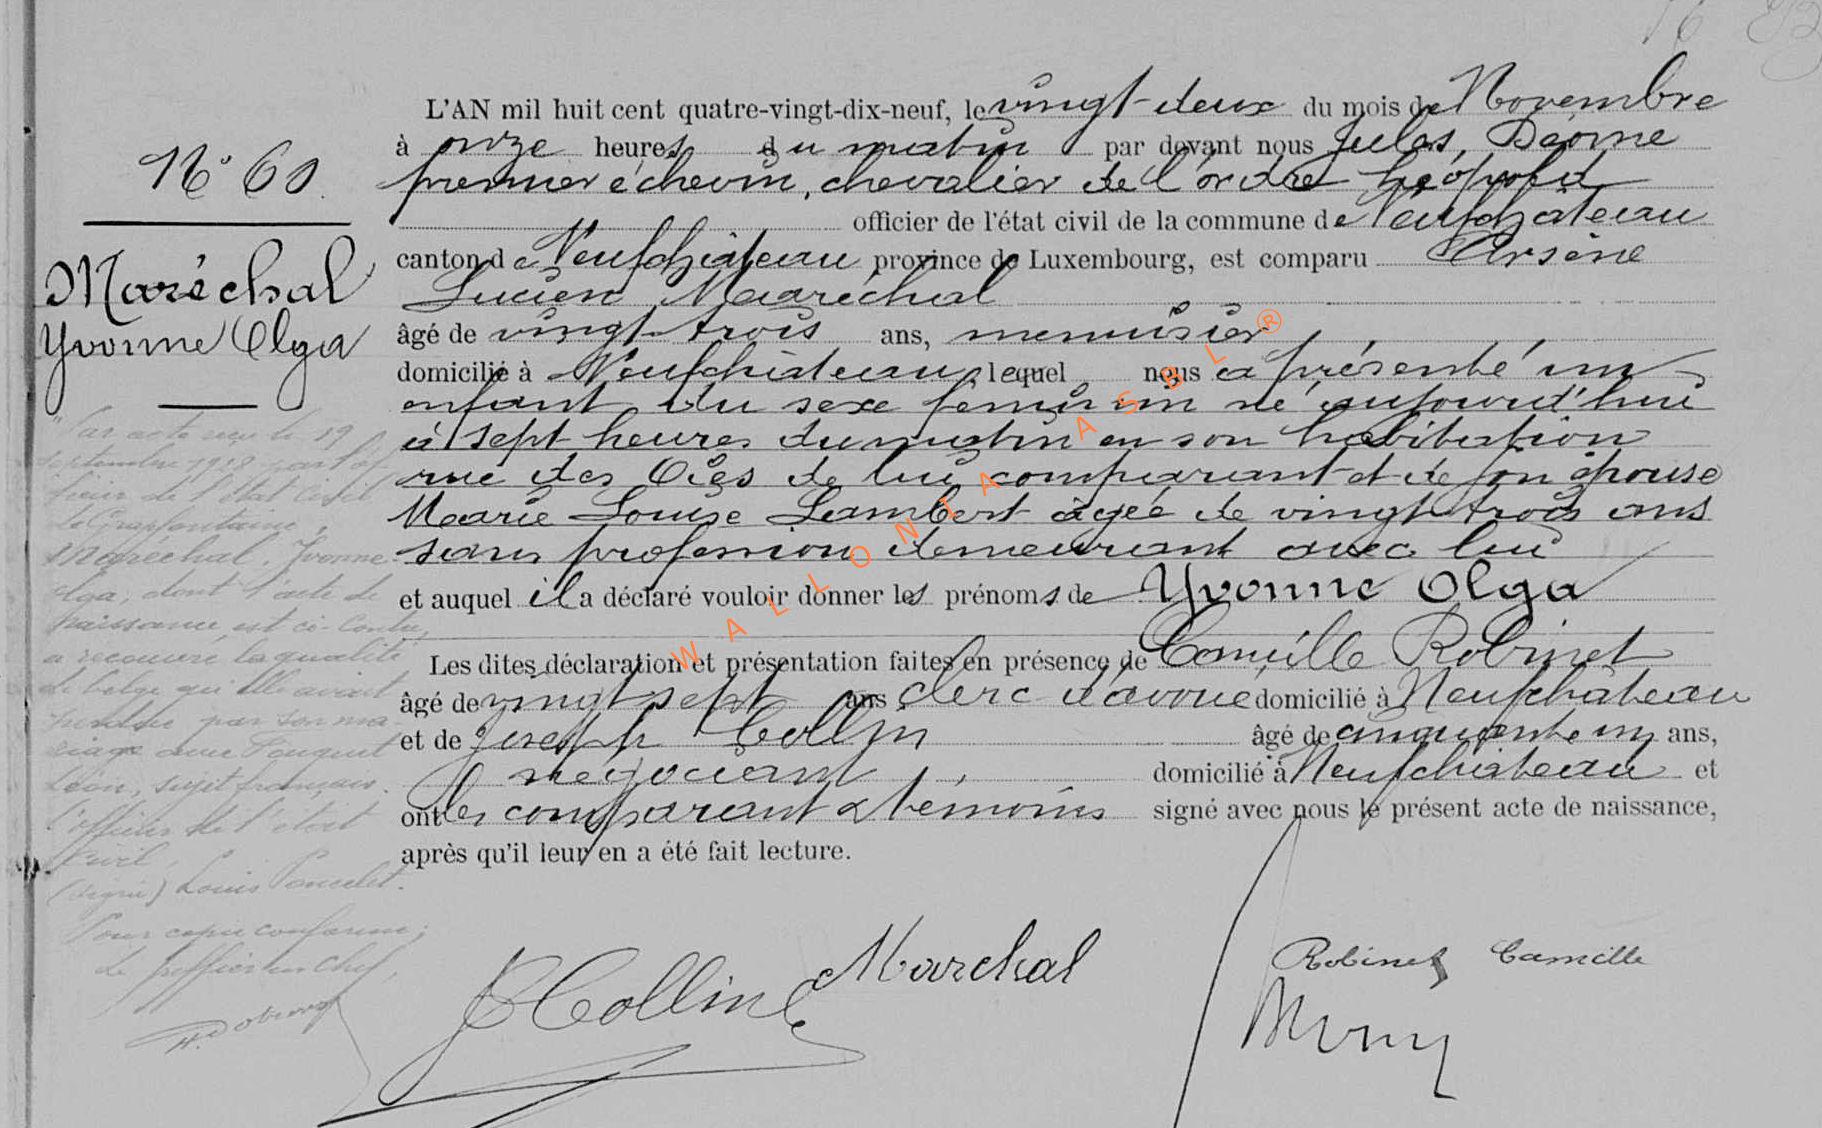 N° 60.
Maréchal
Yvonne Olga
L'AN mil huit cent quatre-vingt-dix-neuf, le vingt-deux du mois de Novembre
à onze heures du matin par devant nous Jules,
premier échevin, chevalier de l'ordre Léopold
officier de l'état civil de la commune de Neufchâteau
canton de Neufchâteau province de Luxembourg, est comparu Arsène
Lucien Maréchal
âgé de vingt-trois ans, menuisier
domicilié à Neufchâteau, lequel nous a présenté un
enfant du sexe féminin né aujourd'hui
à sept heures du matin en son habitation
rue des de lui comparant et de son épouse
Marie Louise Lambert âgée de vingt-trois ans
sans profession demeurant avec lui
et auquel il a déclaré vouloir donner les prénoms de Yvonne Olga
Les dites déclaration et présentation faites en présence de Camille Robinet
âgé de vingt sept ans clerc d'avoué domicilié à Neufchâteau
et de Joseph Collin âgé de cinquante un ans,
négociant, domicilié à Neufchâteau et
ont les comparant & témoins signé avec nous le présent acte de naissance,
après qu'il leur en a été fait lecture.
Par acte reçu le 19
septembre 1928 par l'of-
ficier de l'état civil
de Grapfontaine,
Maréchal, Yvonne
Olga, dont l'acte de
naissance est ci-contre,
a recouvré la qualité
de belge qu'elle avait
perdue par son ma-
riage avec
Léon, sujet français.
l'officier de l'état
civil,
(signé) Louis Poncelet.
Pour copie conforme;
Le greffier en chef,
Collin
Marchal
Robinet Camille
WALLONIA ASBL®